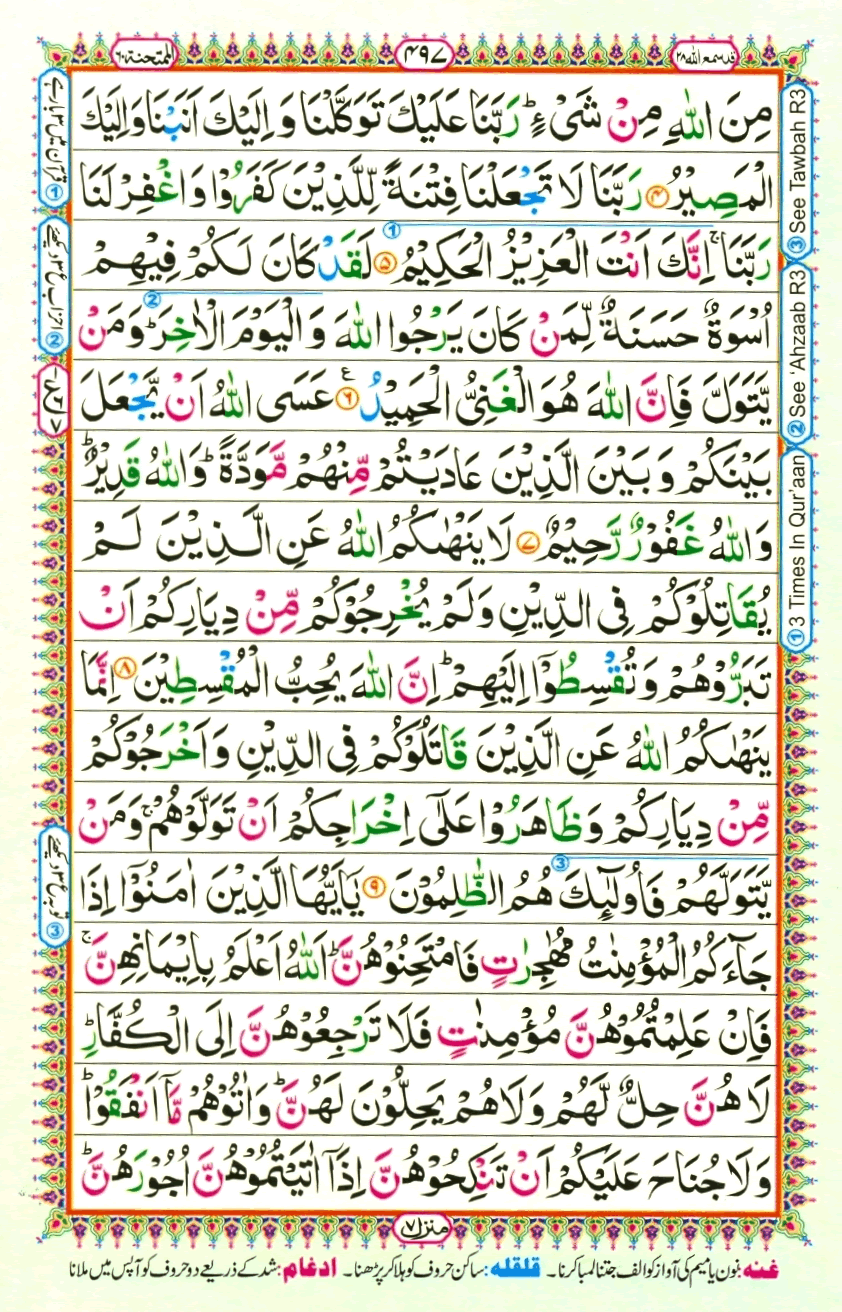 قد سمع الله ٢٨
٤٩٧
الممتحنة ٦٠
مِنَ اللّٰهِ مِنْ شَیْءٍ ؕ رَبَّنَا عَلَیْكَ تَوَكَّلْنَا وَ اِلَیْكَ اَنَبْنَا وَ اِلَیْكَ
الْمَصِیْرُ ۴ رَبَّنَا لَا تَجْعَلْنَا فِتْنَةً لِّلَّذِیْنَ كَفَرُوْا وَ اغْفِرْ لَنَا
رَبَّنَا ۚ اِنَّكَ اَنْتَ الْعَزِیْزُ الْحَكِیْمُ ۵ لَقَدْ كَانَ لَكُمْ فِیْهِمْ
اُسْوَةٌ حَسَنَةٌ لِّمَنْ كَانَ یَرْجُوا اللّٰهَ وَ الْیَوْمَ الْاٰخِرَ ؕ وَ مَنْ
یَّتَوَلَّ فَاِنَّ اللّٰهَ هُوَ الْغَنِیُّ الْحَمِیْدُ ۶ عَسَی اللّٰهُ اَنْ یَّجْعَلَ
بَیْنَكُمْ وَ بَیْنَ الَّذِیْنَ عَادَیْتُمْ مِّنْهُمْ مَّوَدَّةً ؕ وَ اللّٰهُ قَدِیْرٌ ؕ
وَ اللّٰهُ غَفُوْرٌ رَّحِیْمٌ ۷ لَا یَنْهٰىكُمُ اللّٰهُ عَنِ الَّذِیْنَ لَمْ
یُقَاتِلُوْكُمْ فِی الدِّیْنِ وَ لَمْ یُخْرِجُوْكُمْ مِّنْ دِیَارِكُمْ اَنْ
تَبَرُّوْهُمْ وَ تُقْسِطُوْۤا اِلَیْهِمْ ؕ اِنَّ اللّٰهَ یُحِبُّ الْمُقْسِطِیْنَ ۸ اِنَّمَا
یَنْهٰىكُمُ اللّٰهُ عَنِ الَّذِیْنَ قَاتَلُوْكُمْ فِی الدِّیْنِ وَ اَخْرَجُوْكُمْ
مِّنْ دِیَارِكُمْ وَ ظَاهَرُوْا عَلٰۤی اِخْرَاجِكُمْ اَنْ تَوَلَّوْهُمْ ۚ وَ مَنْ
یَّتَوَلَّهُمْ فَاُولٰٓىِٕكَ هُمُ الظّٰلِمُوْنَ ۹ یٰۤاَیُّهَا الَّذِیْنَ اٰمَنُوْۤا اِذَا
جَآءَكُمُ الْمُؤْمِنٰتُ مُهٰجِرٰتٍ فَامْتَحِنُوْهُنَّ ؕ اَللّٰهُ اَعْلَمُ بِاِیْمَانِهِنَّ ۚ
فَاِنْ عَلِمْتُمُوْهُنَّ مُؤْمِنٰتٍ فَلَا تَرْجِعُوْهُنَّ اِلَی الْكُفَّارِ ؕ
لَا هُنَّ حِلٌّ لَّهُمْ وَ لَا هُمْ یَحِلُّوْنَ لَهُنَّ ؕ وَ اٰتُوْهُمْ مَّاۤ اَنْفَقُوْا ؕ
وَ لَا جُنَاحَ عَلَیْكُمْ اَنْ تَنْكِحُوْهُنَّ اِذَاۤ اٰتَیْتُمُوْهُنَّ اُجُوْرَهُنَّ ؕ
منزل ٧
③ See Tawbah R3
② See 'Ahzaab R3
① 3 Times In Qur'aan
① قرآن میں ۳ بار ہے
② احزاب ع ۳ دیکھئے
③ توبہ ع ۳ دیکھئے
غنه: نون یا میم کی آواز کو الف جتنا لمبا کرنا۔ قلقله: ساکن حروف کو ہلا کر پڑھنا۔ ادغام: شد کے ذریعے دو حروف کو آپس میں ملانا